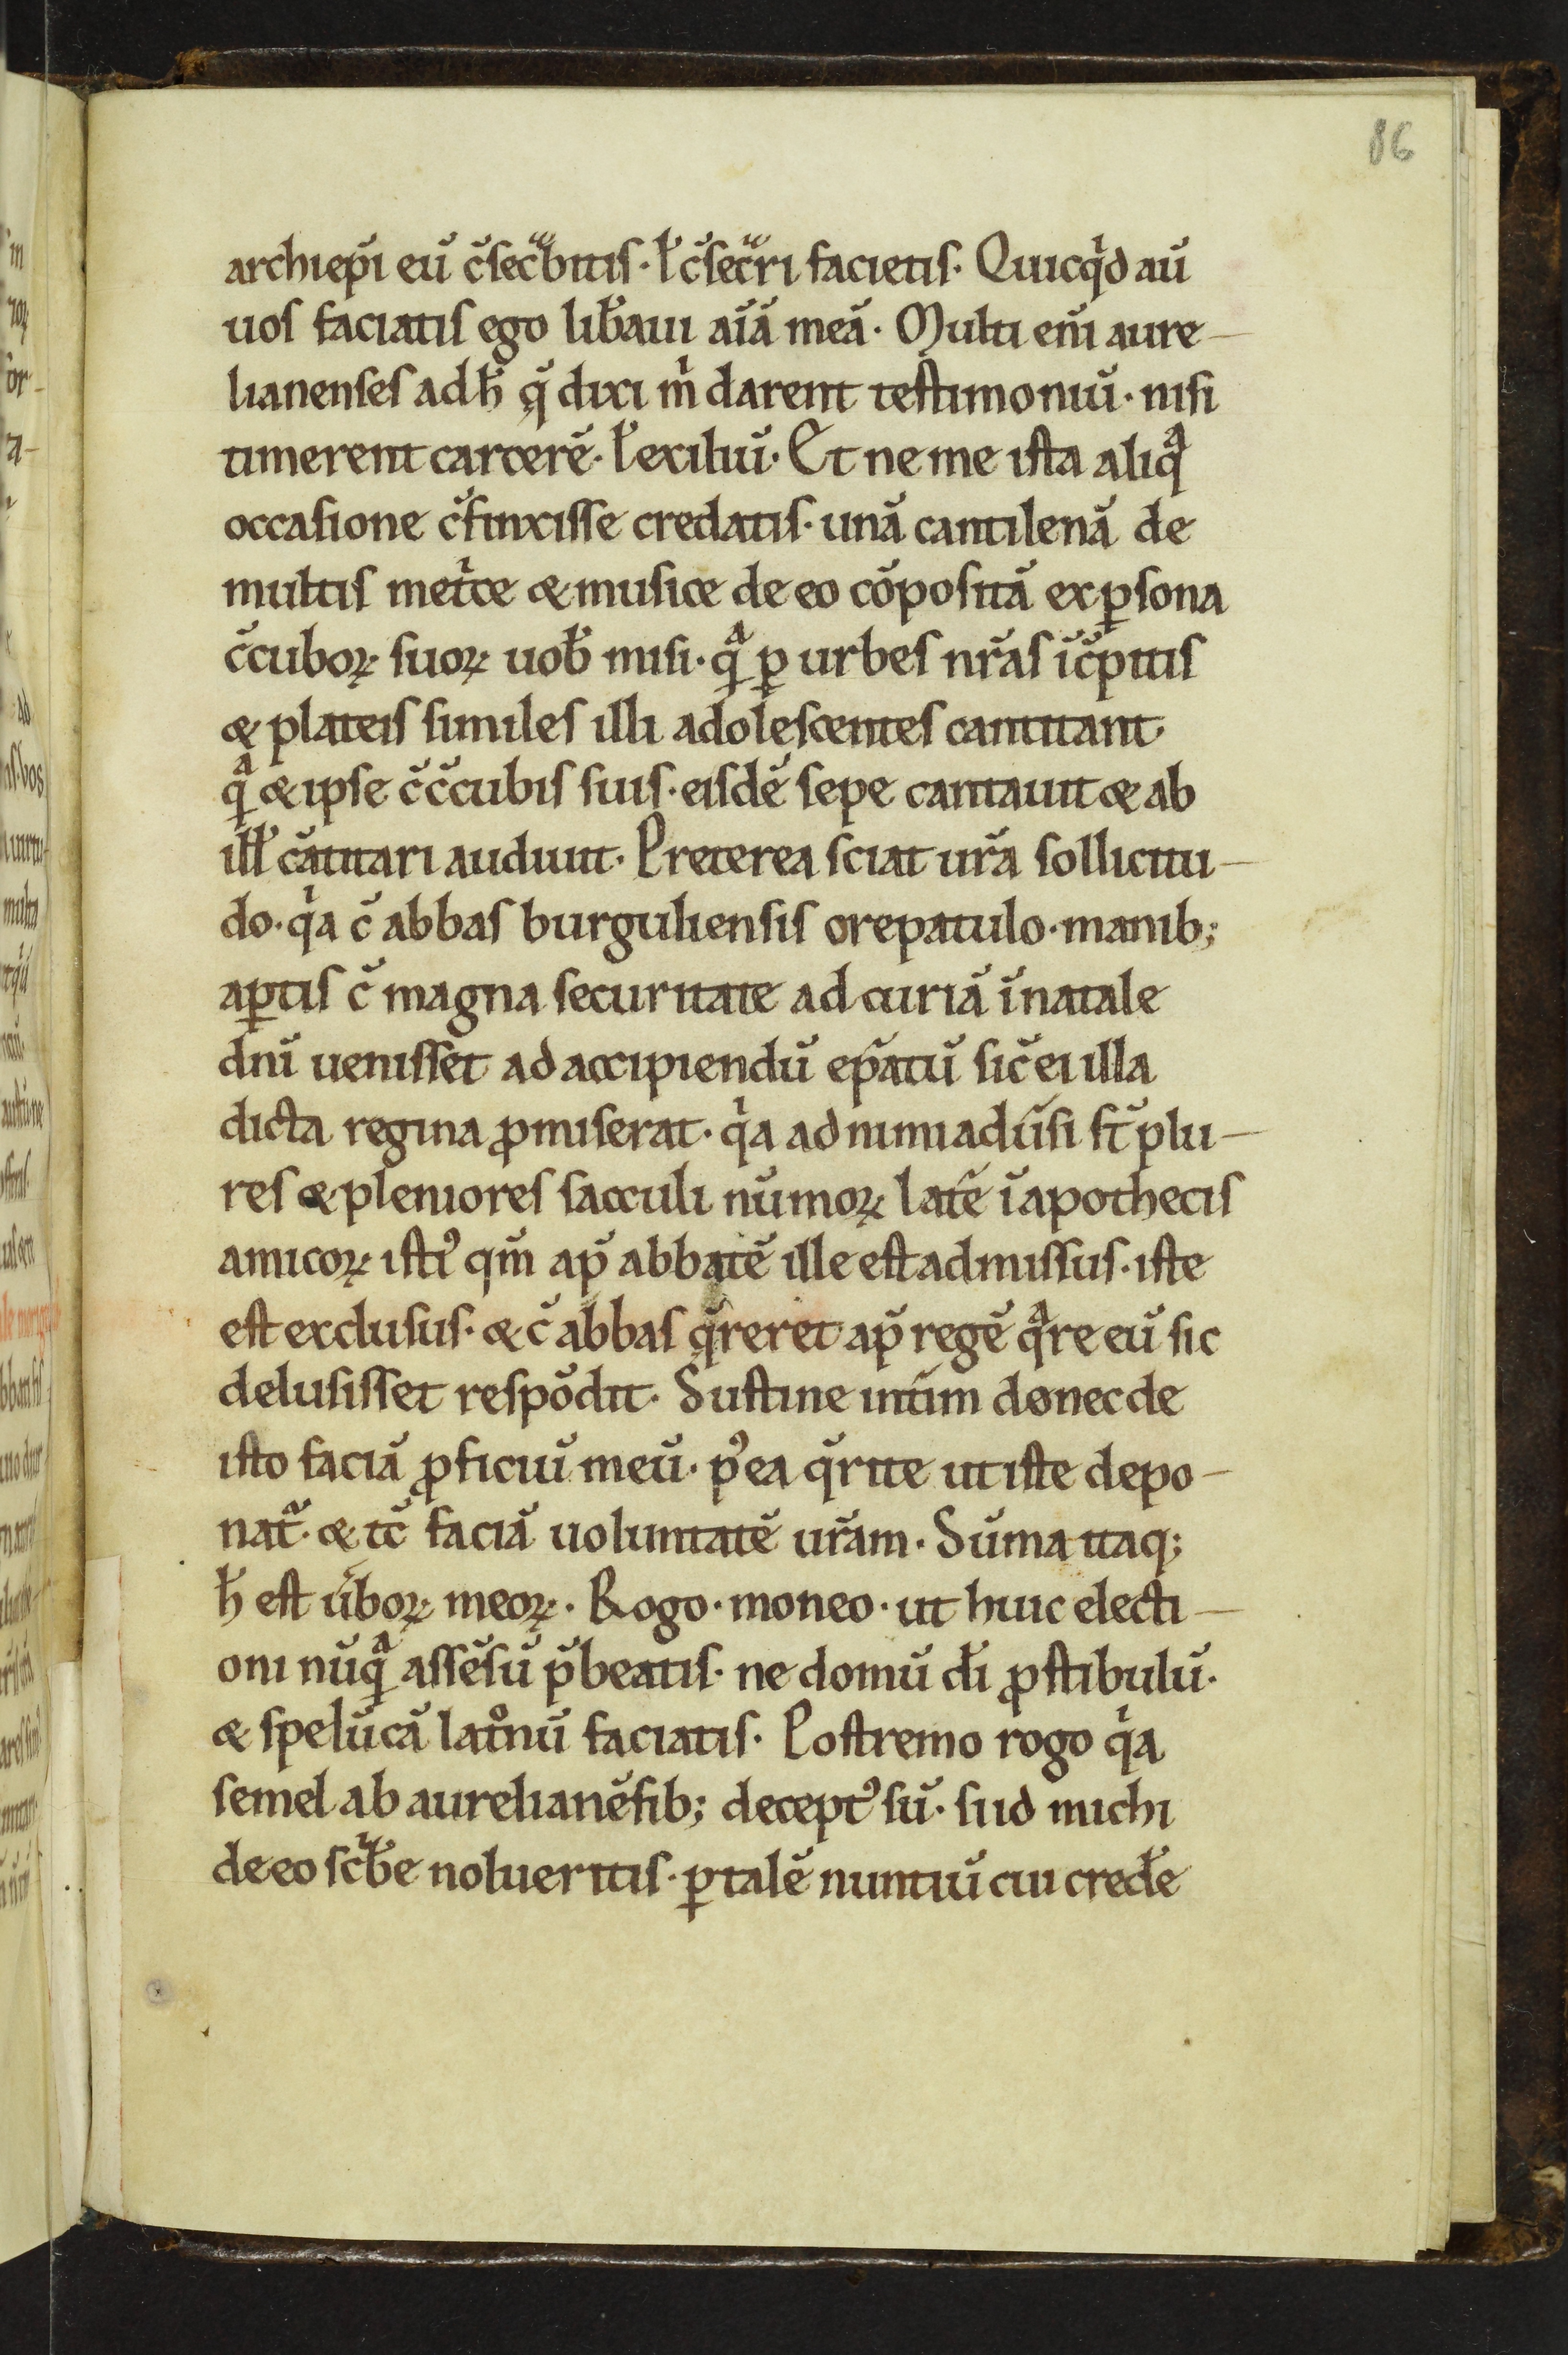 86
archiep̃i eũ c̃secͣbitis· ł c̃secͣri facietis· Quicqͥd aũ
uos faciatis ego lib̃aui aĩã meã· Multi eñi aure-
lianenses ad h̃ qđ dixi m̃ darent testimoniũ· nisi
timerent carcerẽ· ł exiliũ· Et ne me ista aliqͣ
occasione c̃finxisse credatis· unã cantilenã de
multis metͥce & musice de eo cõpositã ex ꝑsona
c̃cuboꝝ suoꝝ uob̃ misi· qͣ ꝑ urbes nr̃as ĩc̃pitis
& plateis similes illi adolescentes cantitant·
qͣ & ipse c̃ c̃cubis suis· eisdẽ sepe cantauit & ab
ill̃ cãtitari audiuit· Preterea sciat ur̃a sollicitu-
do· qͥa c̃ abbas burguliensis ore patulo· manib;
aꝑtis c̃ magna securitate ad curiã ĩ natale
dñi uenisset ad accipiendũ ep̃atũ sic̃ ei illa
dicta regina ꝓmiserat· qͥa adnimiaduͥsi st̃ plu-
res & pleniores sacculi nũmoꝝ latẽ ĩ apothecis
amicoꝝ istiꝰ qm̃ ap̃ abbatẽ ille est admissus· iste
est exclusus· & c̃ abbas q̃reret ap̃ regẽ qͣre eũ sic
delusisset respõdit· Sustine int̃im donec de
isto faciã ꝓficiũ meũ· pꝰea q̃rite ut iste depo-
nat̃· & tc̃ faciã uoluntatẽ ur̃am· Sũma itaq;
h̃ est ũboꝝ meoꝝ· Rogo· moneo· ut huic electi-
oni nũqͣ assẽsũ p̃beatis· ne domũ d̃i ꝓstibulũ·
& spelũcã latͦnũ faciatis· Postremo rogo qͥa
semel ab aurelianẽsib; deceptꝰ sũ· si ͥd michi
de eo scͥb̃e nolueritis· ꝑ talẽ nuntiũ cui cred̃e